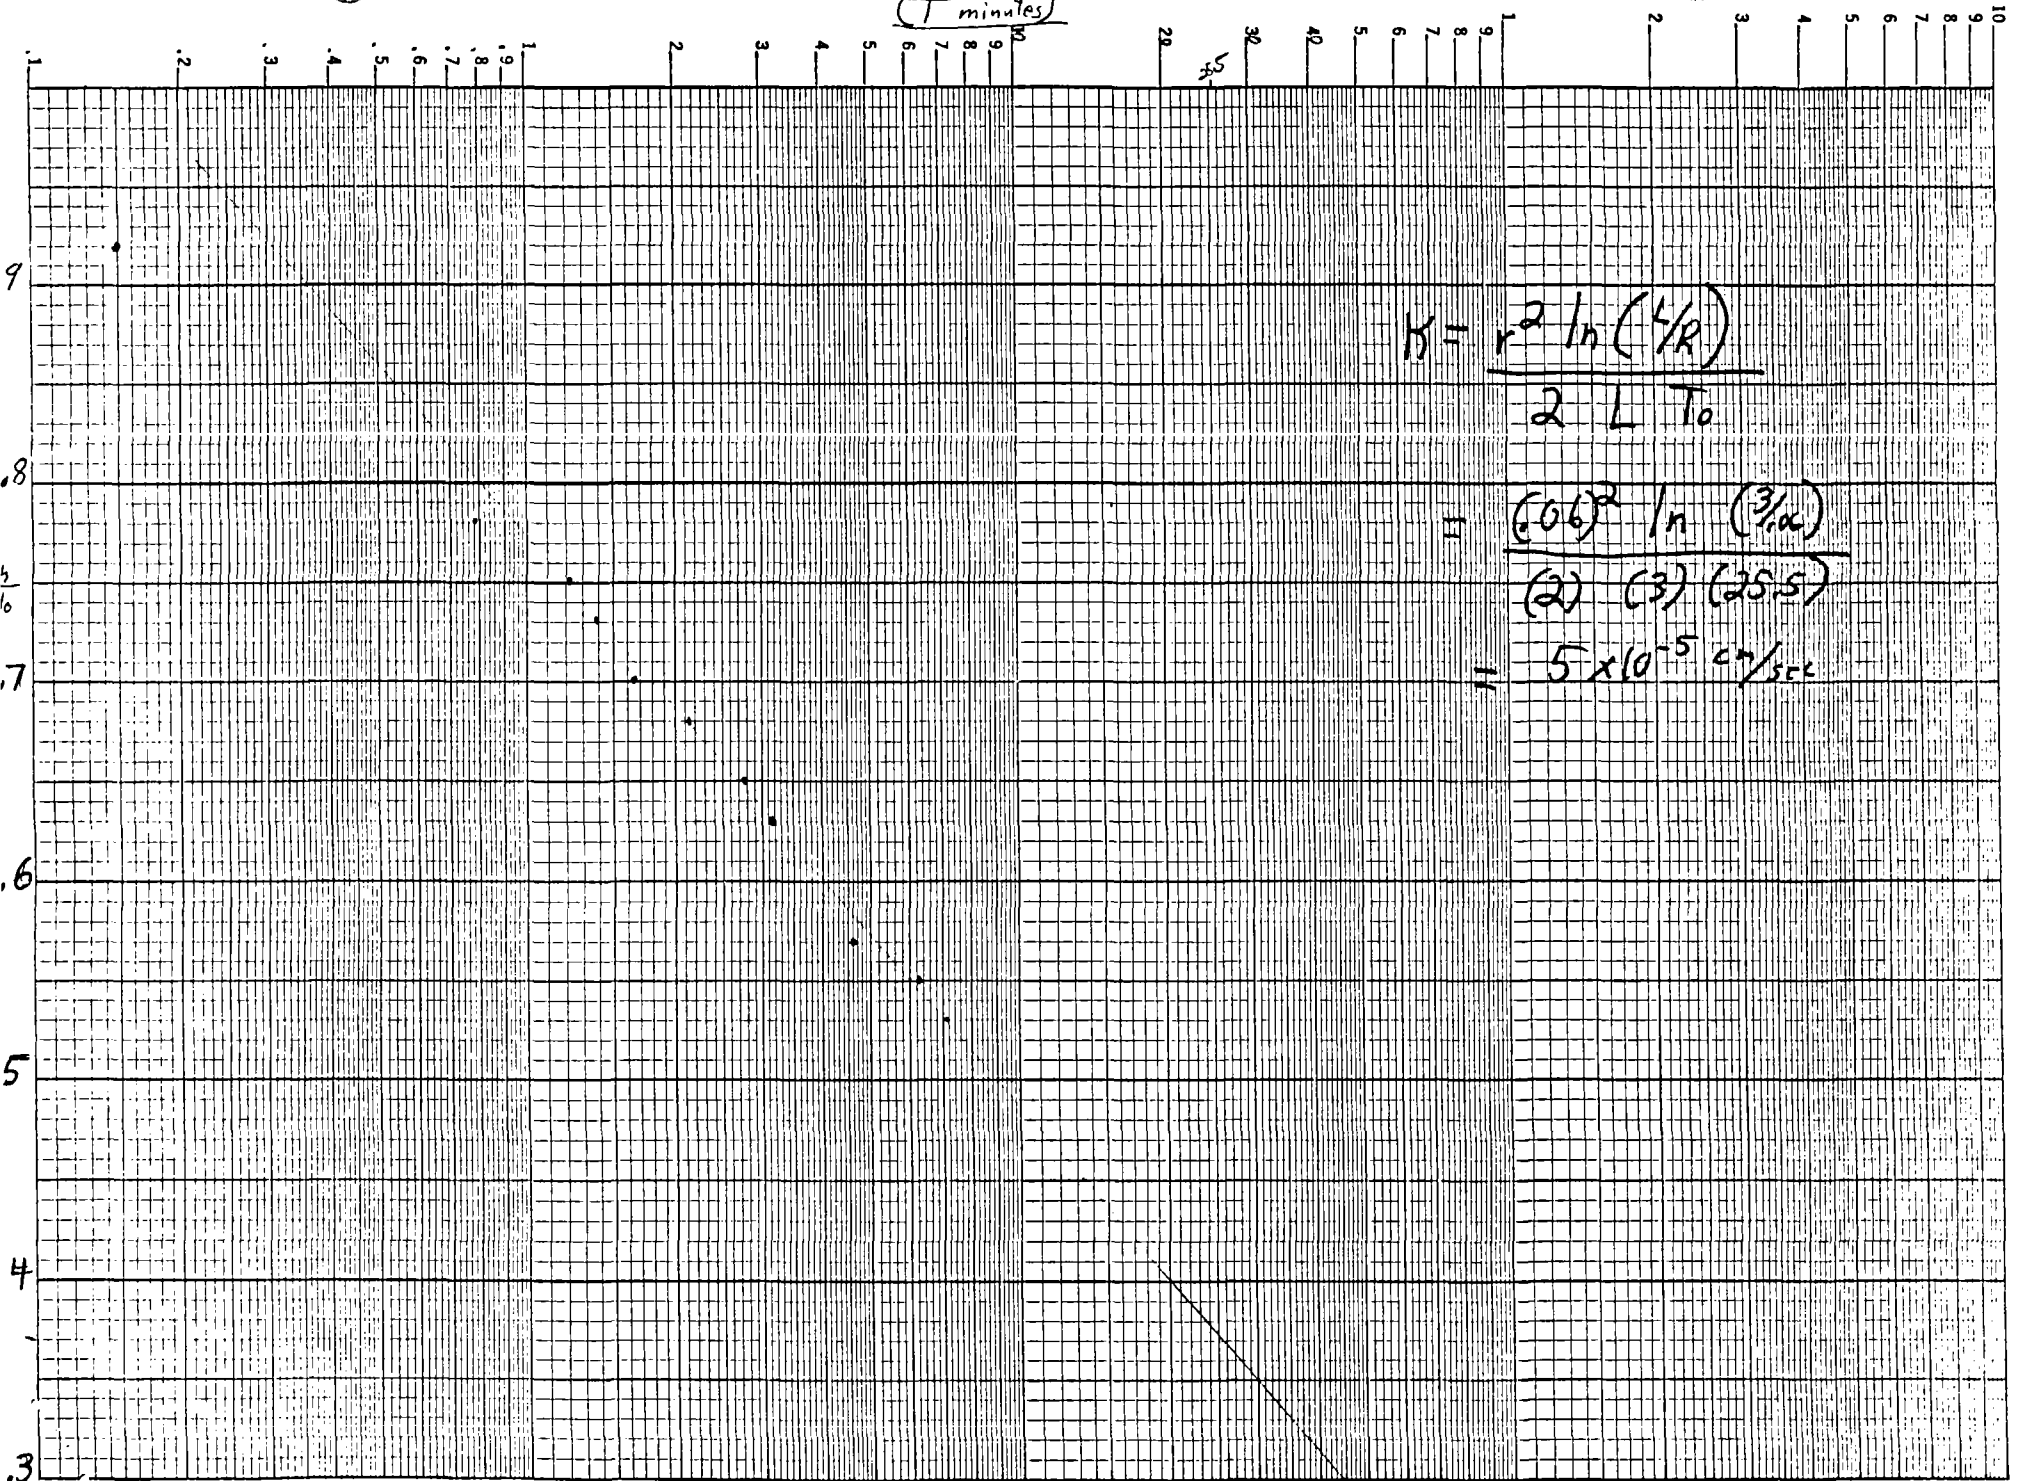 (T minutes)
.1 .2 .3 .4 .5 .6 .7 .8 .9 1 2 3 4 5 6 7 8 9 10 20 25 30 40 5 6 7 8 9 1 2 3 4 5 6 7 8 9 10
9
.8
.7
.6
5
4
.3
K = r² ln (L/R)
2 L To
= (.06)² ln (3/.06)
(2) (3) (25.5)
= 5 x10⁻⁵ cm/sec